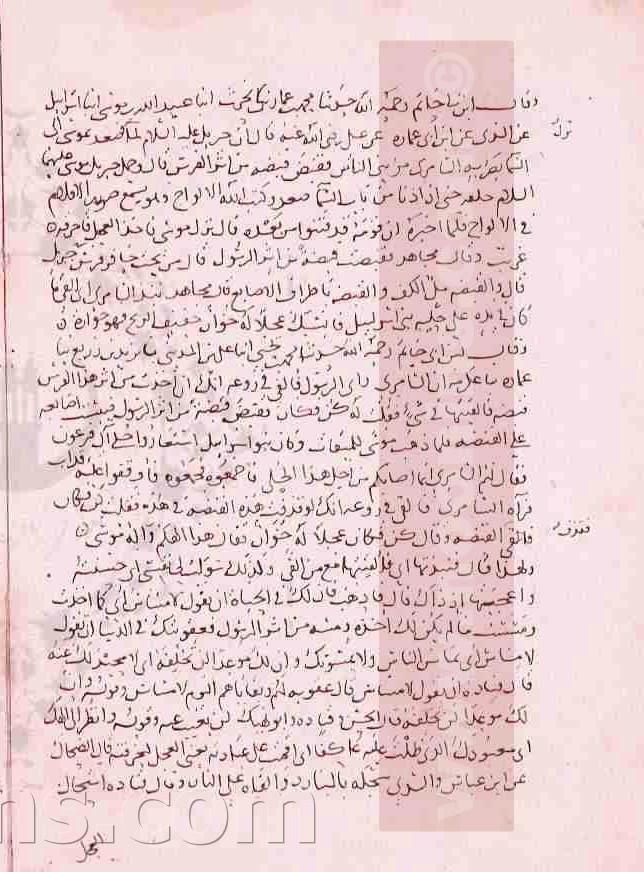 وقال ابن ابي حاتم رحمه الله حدثنا محمد بن عمار بن الحارث انبا عبيد الله بن موسى انبا اسرائيل
عن السدي عن ابن ابي عماره عن علي رضي الله عنه قال ان جبريل عليه السلام لما فصعد بموسى الى
نزل
السما بصر به السامري من بين الناس فقبض قبضه من اثر الفرس قال وحمل جبريل موسى عليهما
السلام خلفه حتى اذا دنا من باب السما صعد وكتب الله الالواح وهو يسمع صرير الاقلام
في الالواح فلما اخبره ان قومه قد فتنوا من بعده قال نزل موسى فاخذ العجل فاحرقه
غريب وقال مجاهد فقبضت قبضة من اثر الرسول قال من تحت حافر فرس جبريل
قال والقبضه مل الكف والقبضه باطراف الاصابع قال مجاهد نبذ السامري اى القى ما
كان في يده على حليه بني اسرايل فانسبك عجلا جسدا له خوار حفيف الريح فيه فهو خواره
وقال ابن ابي حاتم رحمه الله حدثنا محمد بن يحيى انبا علي بن المديني سا يزيد بن زريع سا
عماره سا عكرمه ان السامري راى الرسول فالقي في روعه انك ان اخذت من اثر هذا الفرس
قبضه فالقيتها في شي فقلت له كن فكان فقبض قبضة من اثر الرسول فيبست اصابعه
على القبضه فلما ذهب موسى للميقات وكان بنو اسرايل استعاروا حلي آل فرعون
فقال لهم السامري انما اصابكم من اجل هذا الحلي فاجمعوه فجمعوه فاوقدوا عليه فذاب
فرآه السامري فالقي في روعه انك لو قذفت هذه القبضه في هذه فقلت كن فيكون
فالقى القبضه وقال كن فكان عجلا له خوار فقال هذا الهكم واله موسى
فقذف
ولهذا قال فنبذتها اي القيتها مع من القى وكذلك سولت لي نفسي اي حسنته
واعجبها اذ ذاك قال فاذهب فان لك في الحياة ان تقول لا مساس اي كما اخذت
ومسست ما لم يكن لك اخذه ومسه من اثر الرسول فعقوبتك في الدنيا ان تقول
لا مساس اي لا تماس الناس ولا يمسونك وان لك موعدا لن تخلفه اى لا محيد لك عنه
قال قتاده ان تقول لا مساس قال عقوبه لهم وبقاياهم اليوم لا مساس وقوله وان
لك موعدا لن تخلفه قال الحسن وقتاده وابو نهيك لن تغيب عنه وقوله وانظر الى الهك
اى معبودك الذى ظلت عليه عاكفا اى اقمت على عبادته يعني العجل لنحرقنه قال الضحاك
عن ابن عباس والسدي سحله بالمبارد والقاه على النار وقال قتاده استحال
العجل